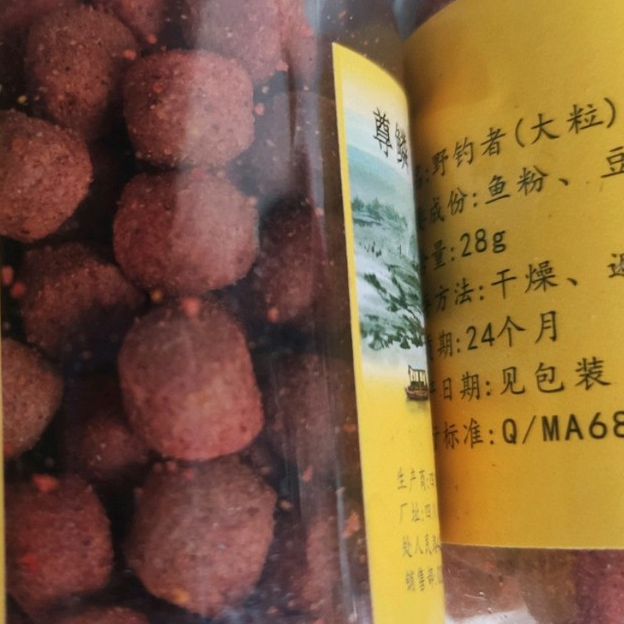 尊鳞
:野钓者(大粒)
成份:鱼粉、豆
量:28g
方法:干燥、
期:24个月
日期:见包装
标准:Q/MA68
生产商:四
厂址:四
处人民
销售部